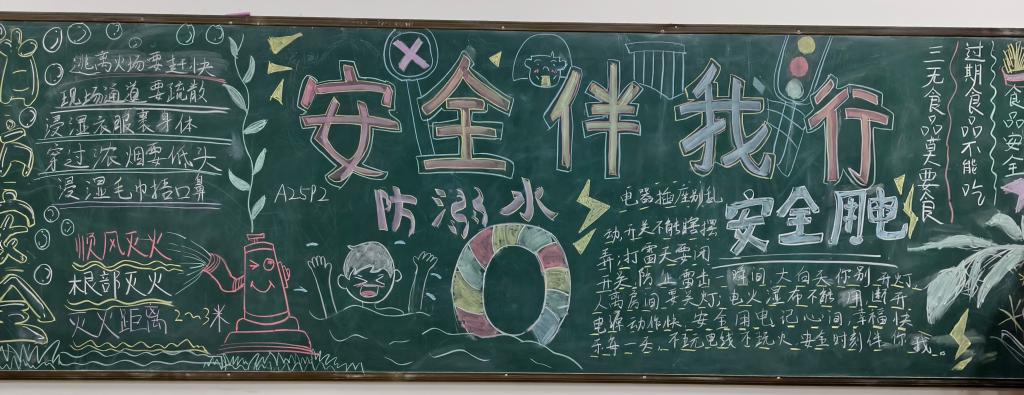 逃离火场要赶快
现场通道要疏散
浸湿衣服裹身体
穿过浓烟要低头
浸湿毛巾捂口鼻
顺风灭火
根部灭火
灭火距离2~3米
A25P2
安全伴我行
防溺水
安全用电
电器插座别乱
动开关不能瞎摆
弄;打雷天要闭
开关,防止雷击一时间,大白天你别开灯,
人离房间要关灯;电火湿布不能用,断开
电源动作快,安全用电记心间,幸福快
乐每一天,不玩电线不玩火,安全时刻伴你
我。
过期食品不能吃
三无食品莫要食
食品安全